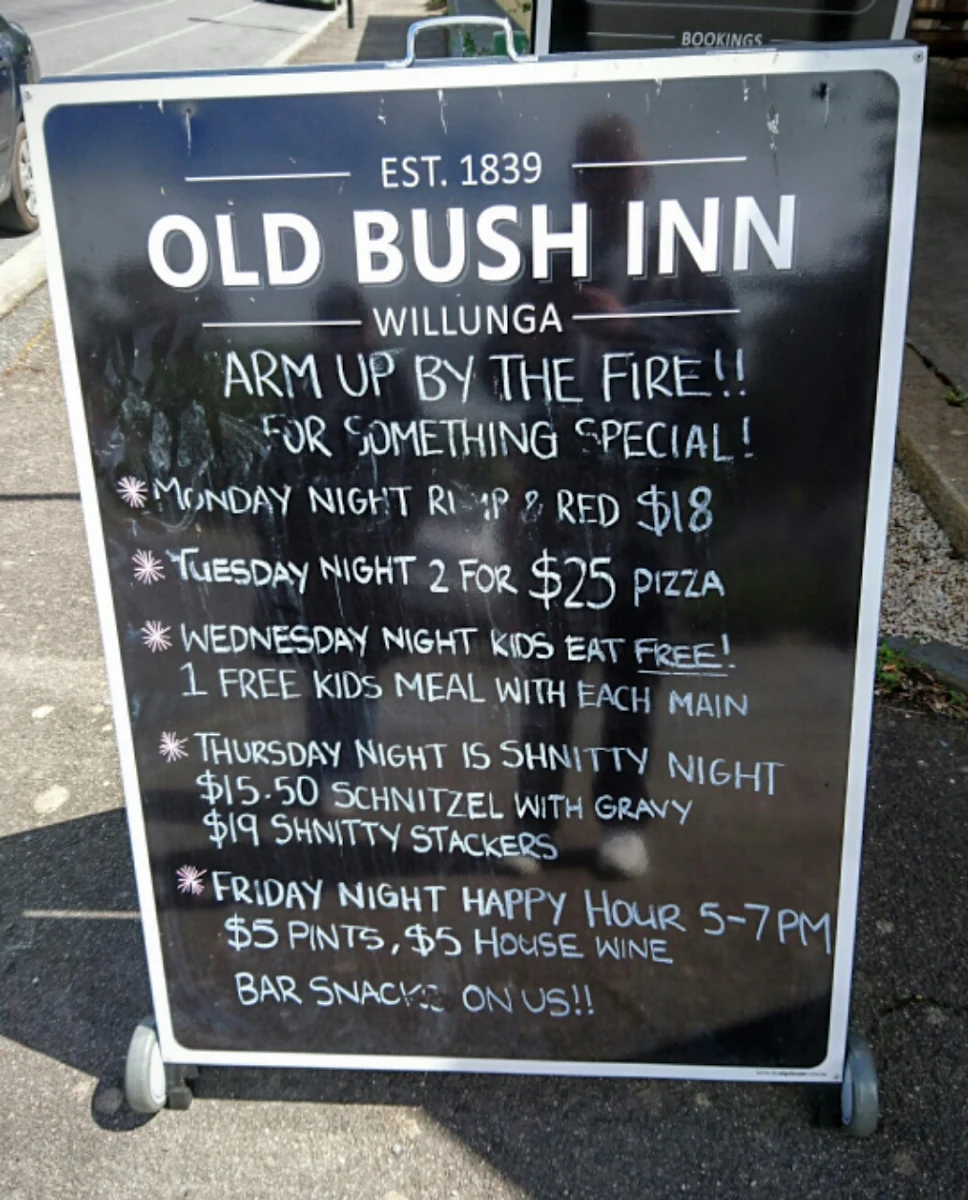 BOOKINGS
EST. 1839
OLD BUSH INN
WILLUNGA
ARM UP BY THE FIRE!!
FOR SOMETHING SPECIAL!
* MONDAY NIGHT & RED $18
* TUESDAY NIGHT 2 FOR $25 PIZZA
* WEDNESDAY NIGHT KIDS EAT FREE!
1 FREE KIDS MEAL WITH EACH MAIN
* THURSDAY NIGHT IS SHNITTY NIGHT
$15.50 SCHNITZEL WITH GRAVY
$19 SHNITTY STACKERS
* FRIDAY NIGHT HAPPY HOUR 5-7PM
$5 PINTS, $5 HOUSE WINE
BAR SNACKS ON US!!